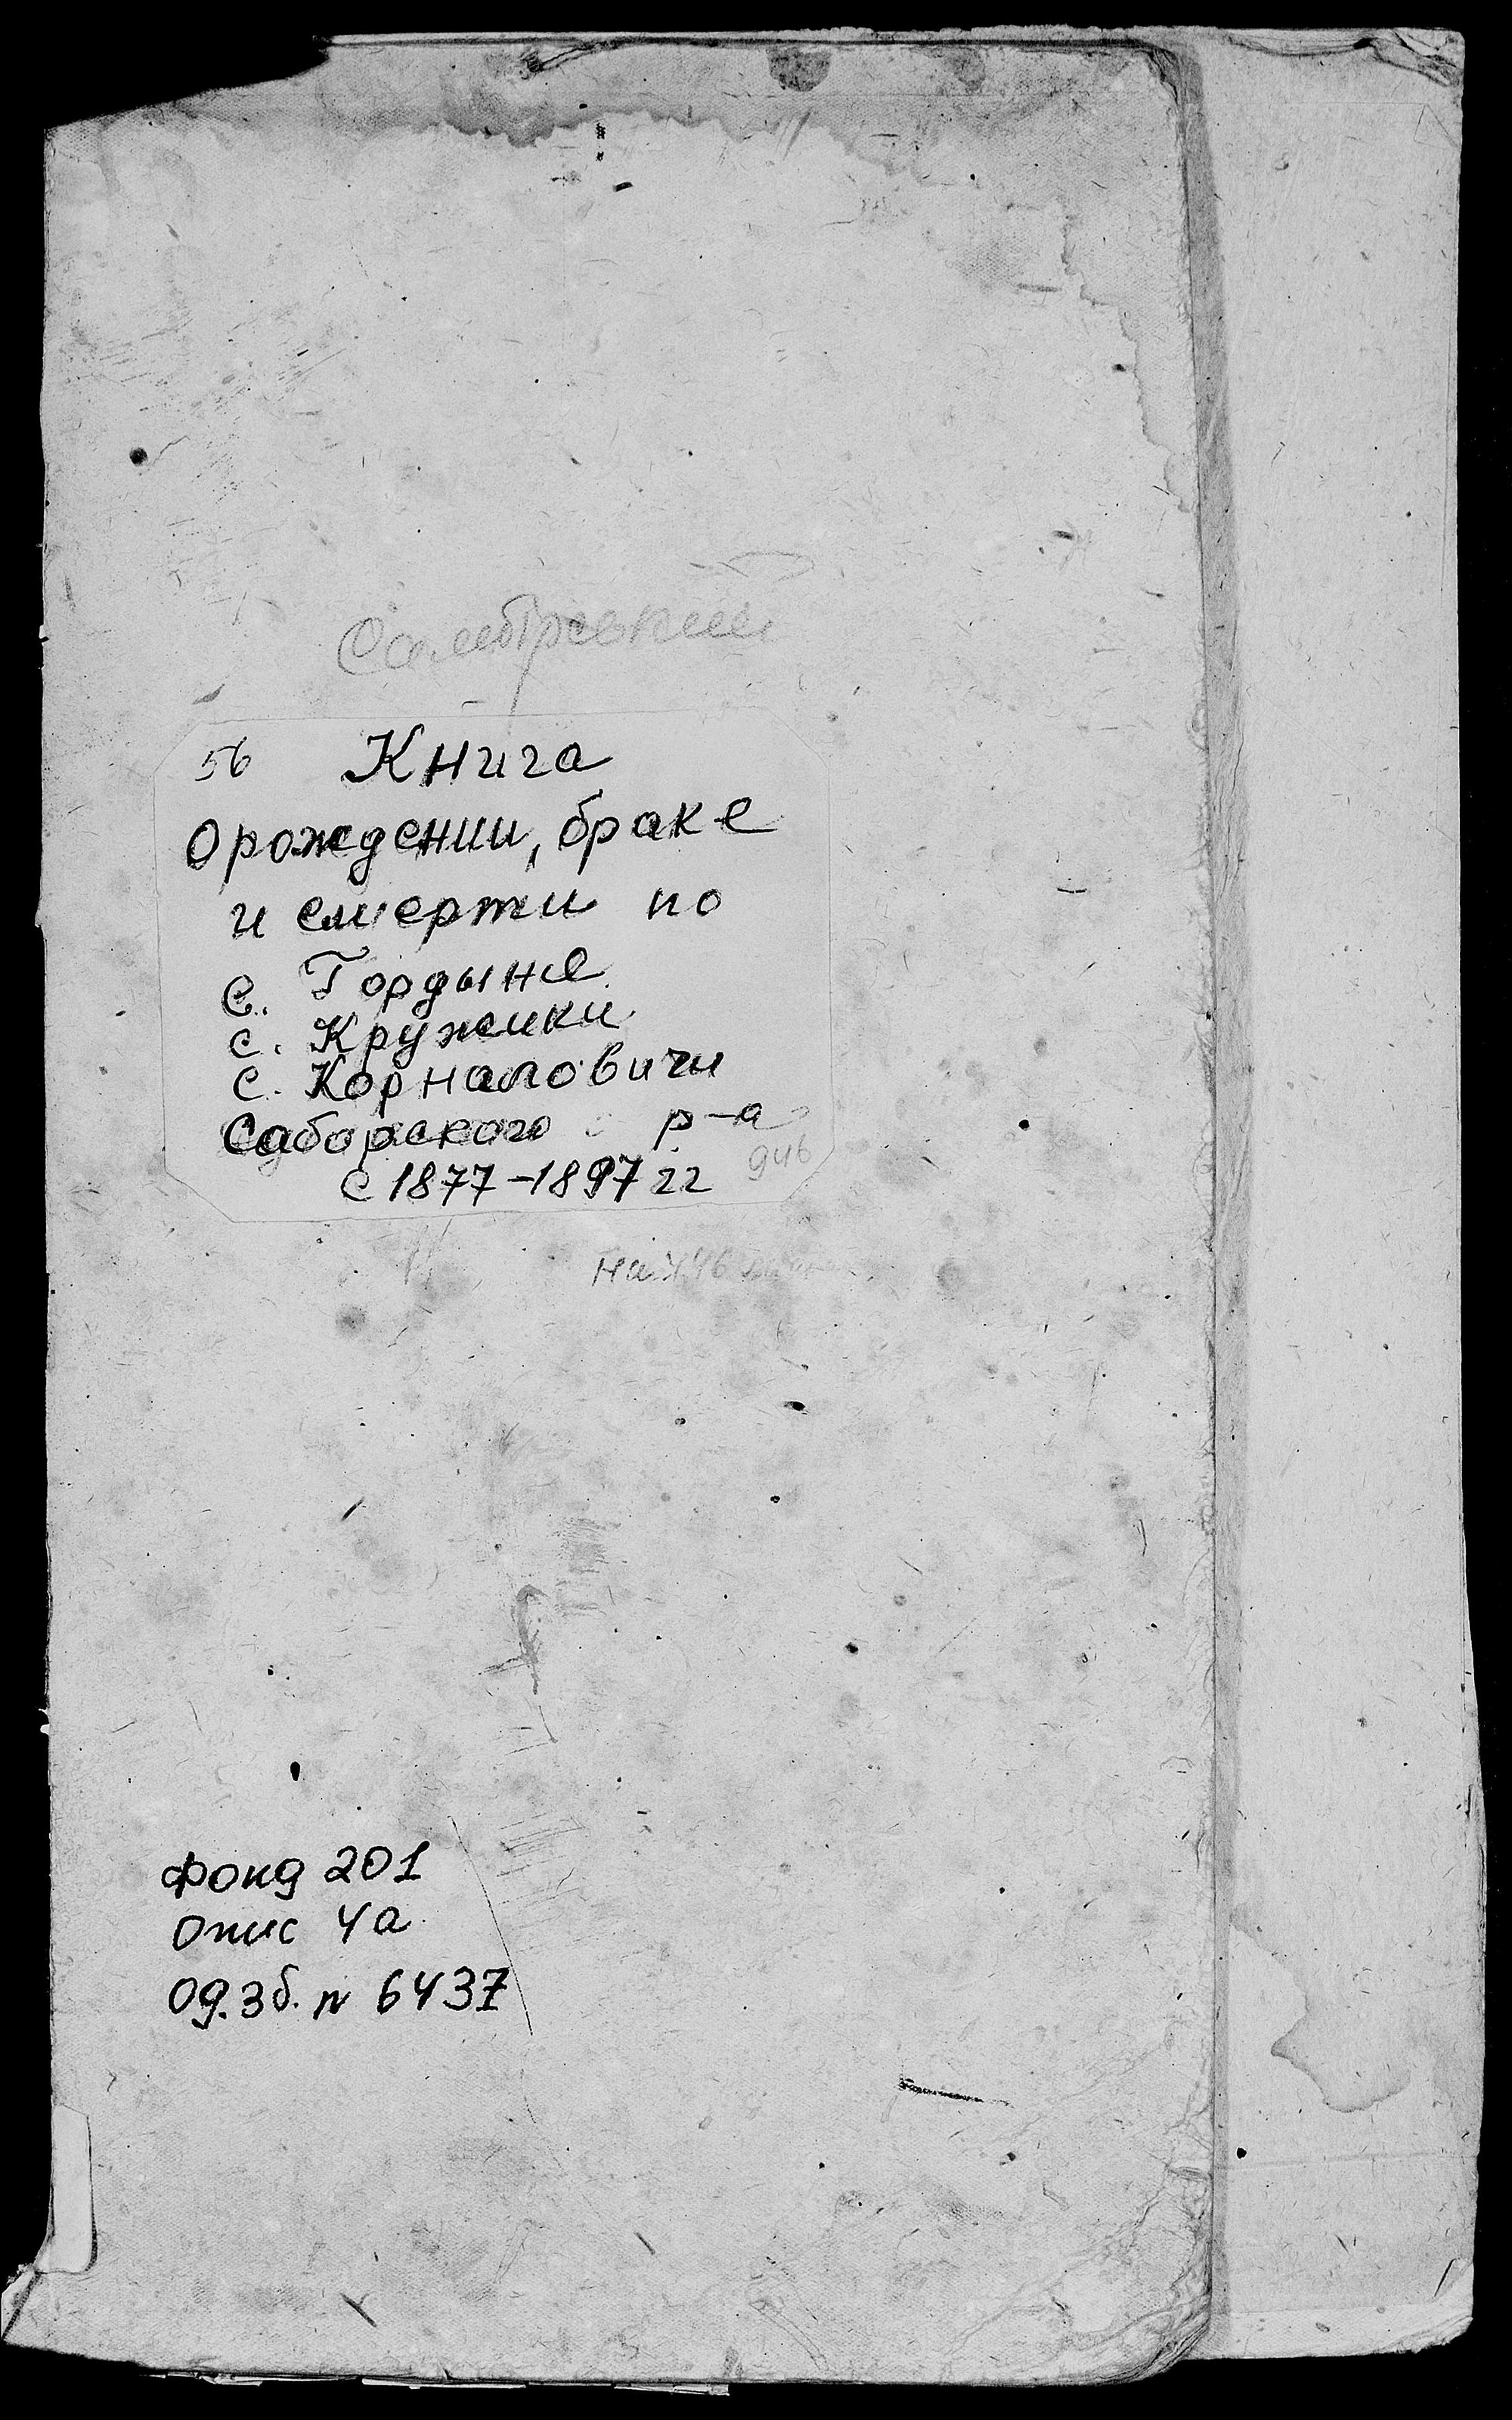 Самбрский
56 Книга
О рождении, браке
и смерти по
с. Гордыне
с. Кружики
с. Корналовичи
Саборского р-а
946
с 1877-1897 гг
Фонд 201
Опис 4а
Од.зб. № 6437